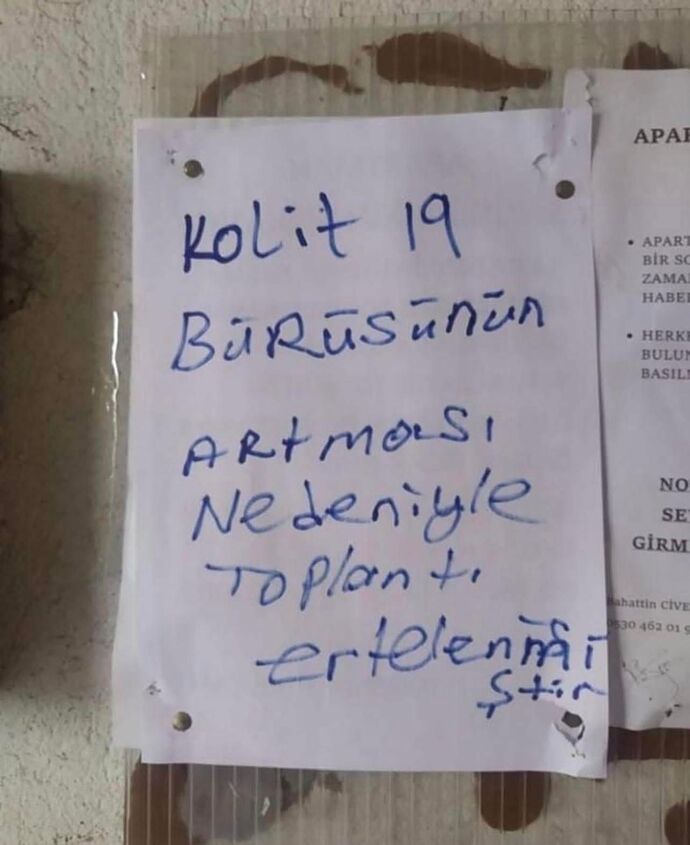 KOLİT 19
BÜRÜSÜNÜN
ARTMASI
Nedeniyle
TOPlantı
ertelenmi
ştir
APAR
• APART
BİR SO
ZAMA
HABE
• HERKE
BULUN
BASILM
NO
SE
GİRM
Bahattin CİVE
0530 462 01 9